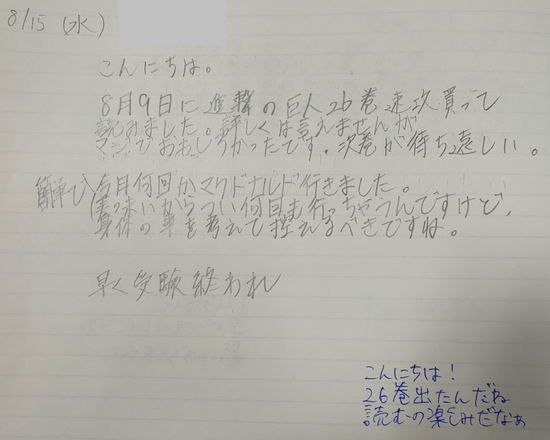 8/15 (水)
こんにちは。
8月9日に進撃の巨人26巻速攻買って
読みました。詳しくは言えませんが
マジでおもしろかったです。次巻が待ち遠しい。
今月何回かマクドナルド行きました。
美味いからつい何回も行っちゃうんですけど、
身体の事を考えて控えるべきですね。
早く受験終われ
こんにちは！
26巻出たんだね
読むの楽しみだなぁ